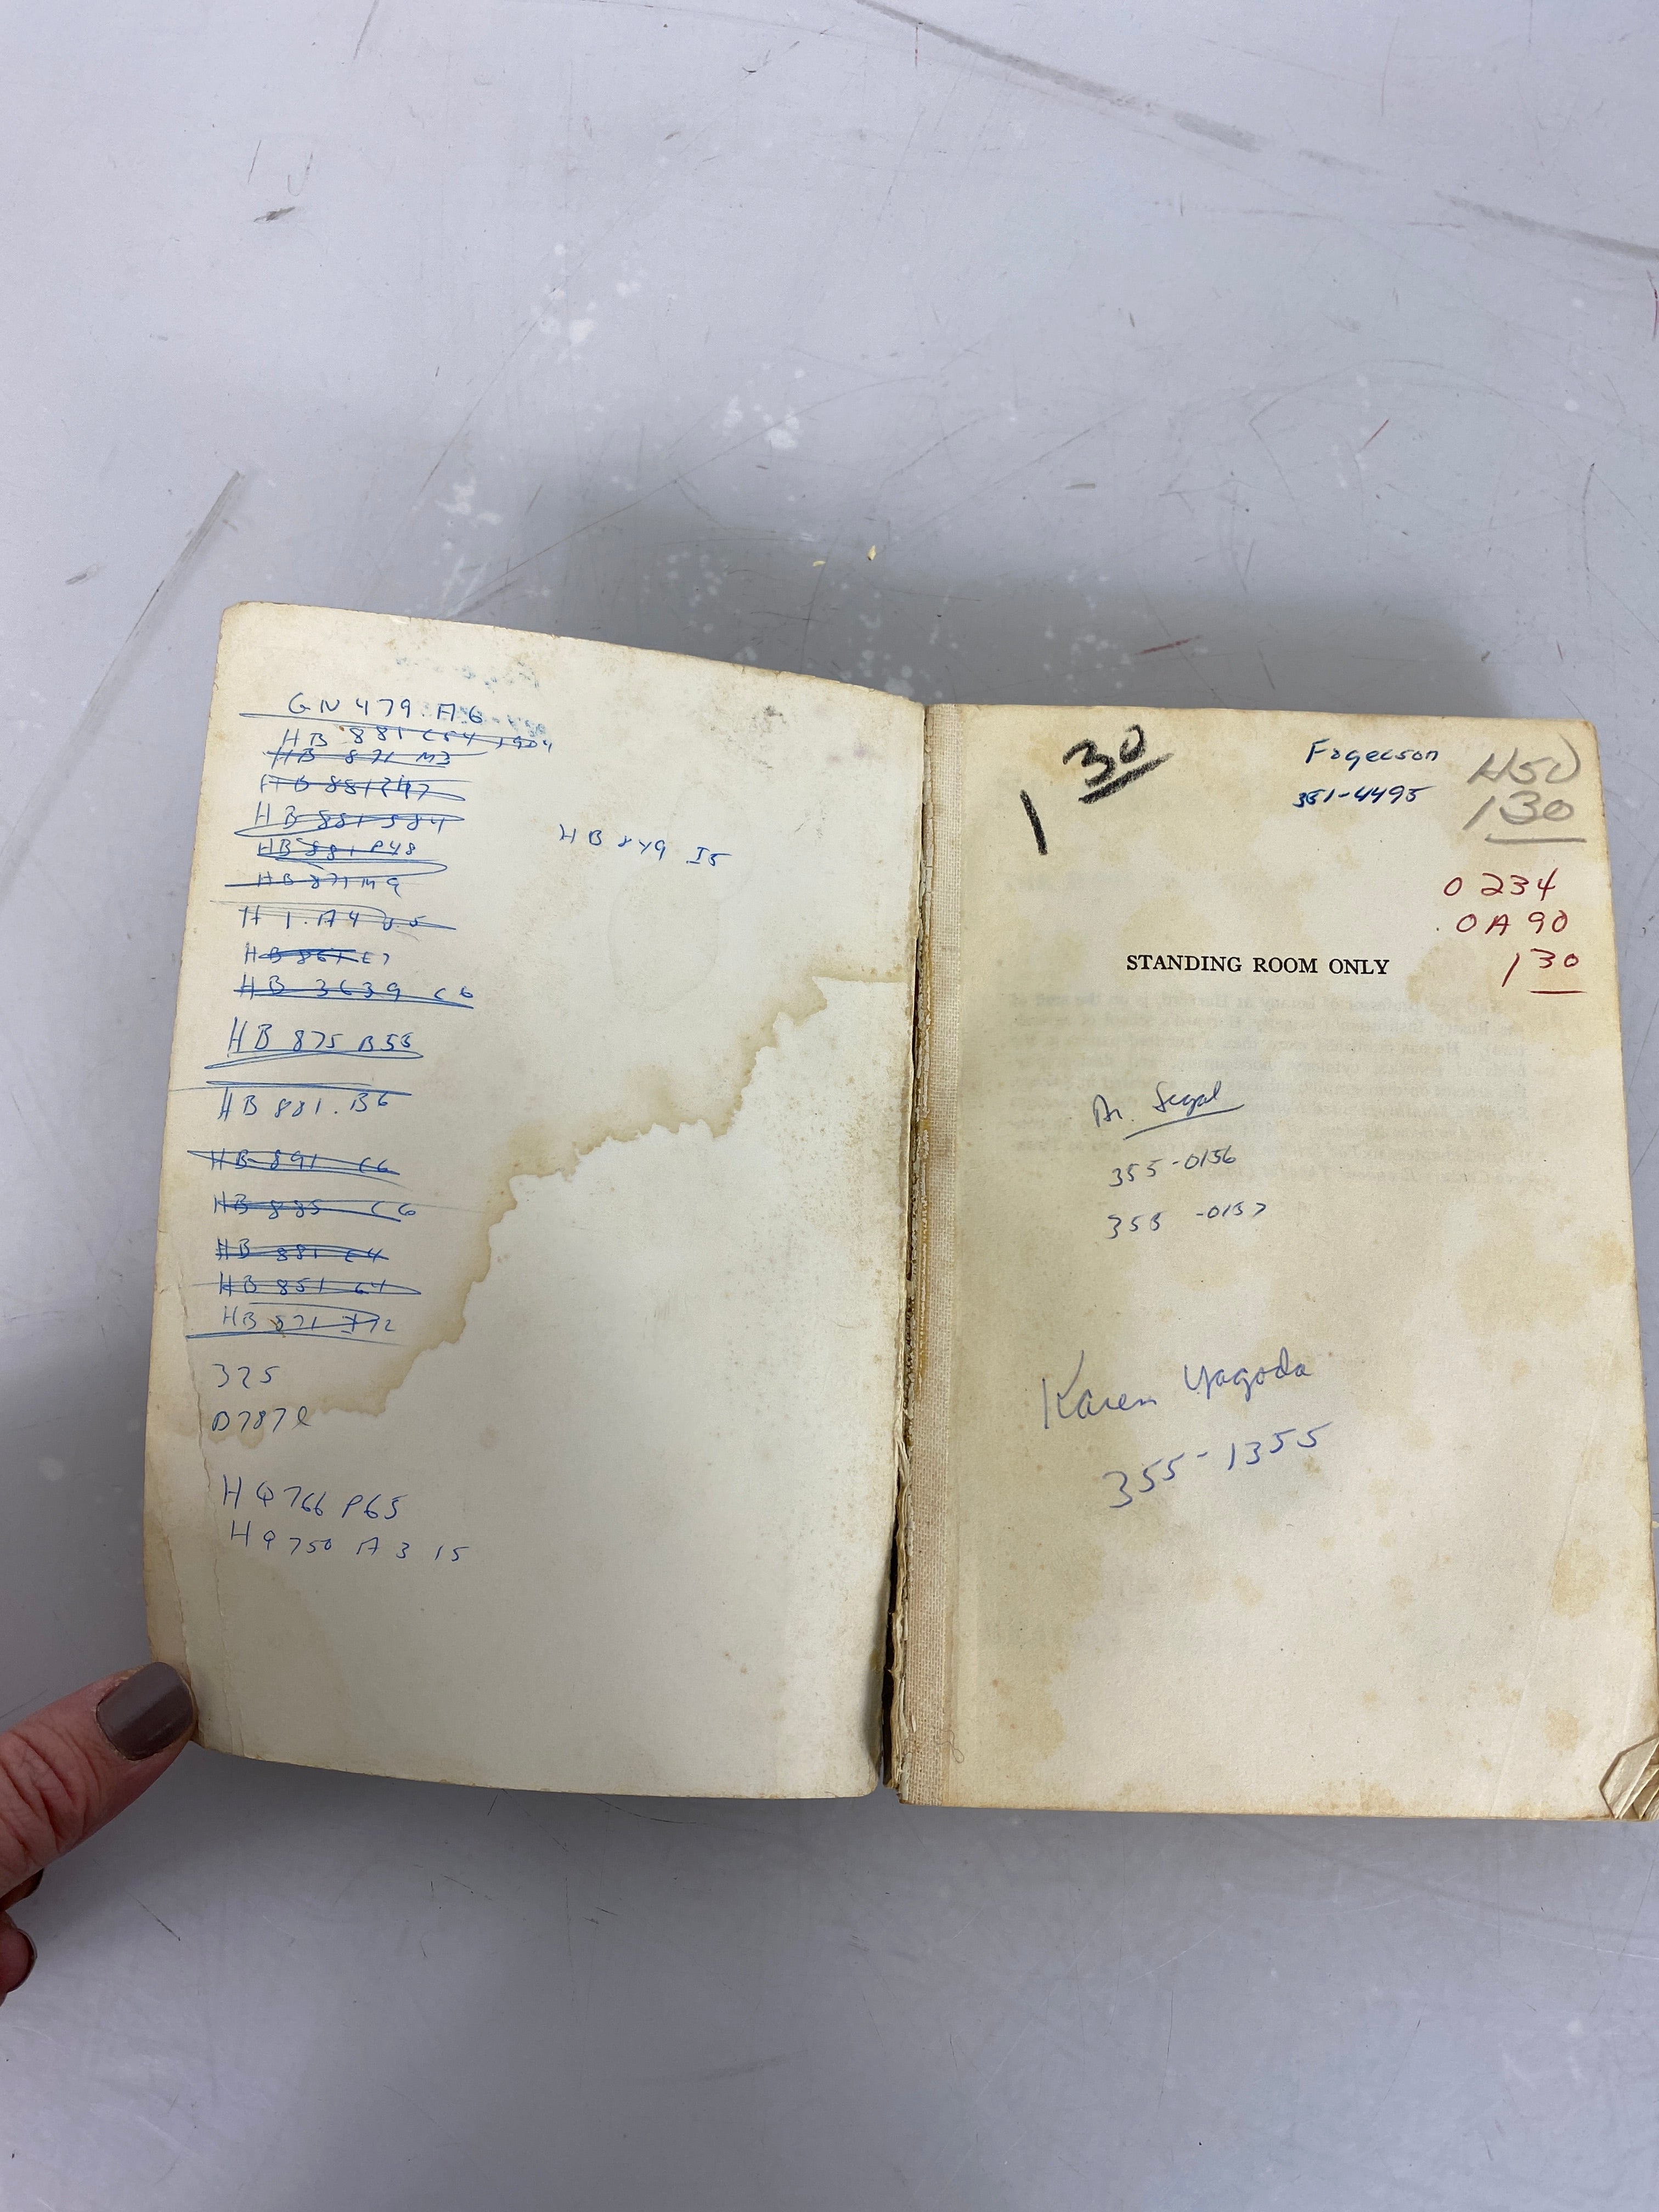 GN 479.A6
HB 881 C54 1904
HB 871 M3
HB 881 S84
HB 881 P48
HB 871 M9
H 1.A4
HB 849 I5
HB 3639 C6
HB 875 B55
HB 881.B6
HB 891 C6
HB 885 C6
HB 881 C4
HB 851 C4
HB 871 I72
325
D787l
HQ766 P65
HQ750 A3 15
1 30
Fogerson
351-4495
H50
130
0 234
0A 90
1 30
STANDING ROOM ONLY
Dr. Segal
355-0156
355 -0157
Karen Yagoda
355-1355